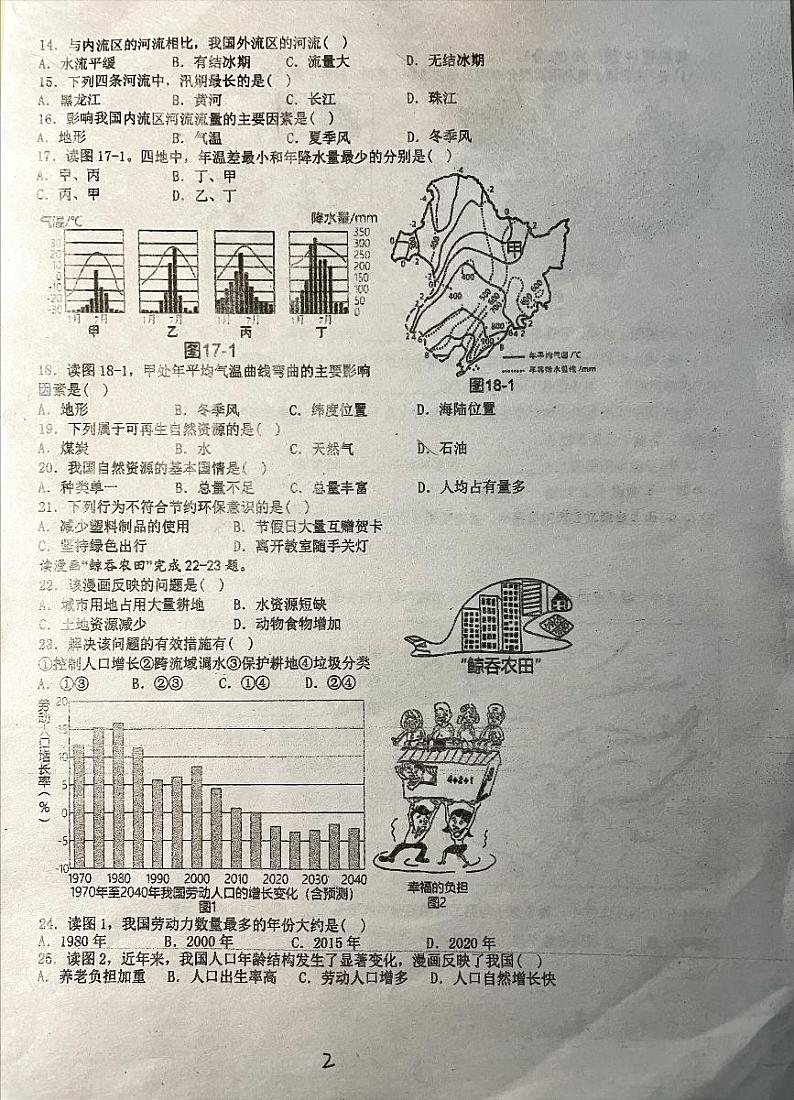 14. 与内流区的河流相比，我国外流区的河流( )
A. 水流平缓 B. 有结冰期 C. 流量大 D. 无结冰期
15. 下列四条河流中，汛期最长的是( )
A. 黑龙江 B. 黄河 C. 长江 D. 珠江
16. 影响我国内流区河流流量的主要因素是( )
A. 地形 B. 气温 C. 夏季风 D. 冬季风
17. 读图17-1。四地中，年温差最小和年降水量最少的分别是( )
A. 甲、丙 B. 丁、甲
C. 丙、甲 D. 乙、丁
气温/℃ 降水量/mm
30
20
10
0
-10
-20
-30
350
300
250
200
150
100
50
0
1月 7月 1月 7月 1月 7月 1月 7月
甲 乙 丙 丁
图17-1
甲
400
400
800
年平均气温/℃
年等降水量线/mm
图18-1
18. 读图18-1，甲处年平均气温曲线弯曲的主要影响
因素是( )
A. 地形 B. 冬季风 C. 纬度位置 D. 海陆位置
19. 下列属于可再生自然资源的是( )
A. 煤炭 B. 水 C. 天然气 D. 石油
20. 我国自然资源的基本国情是( )
A. 种类单一 B. 总量不足 C. 总量丰富 D. 人均占有量多
21. 下列行为不符合节约环保意识的是( )
A. 减少塑料制品的使用 B. 节假日大量互赠贺卡
C. 坚持绿色出行 D. 离开教室随手关灯
读漫画“鲸吞农田”完成22-23题。
22. 该漫画反映的问题是( )
A. 城市用地占用大量耕地 B. 水资源短缺
C. 土地资源减少 D. 动物食物增加
23. 解决该问题的有效措施有( )
①控制人口增长②跨流域调水③保护耕地④垃圾分类
A. ①③ B. ②③ C. ①④ D. ②④
“鲸吞农田”
劳动人口增长率(%)
20
15
10
5
0
-5
-10
1970 1980 1990 2000 2010 2020 2030 2040
1970年至2040年我国劳动人口的增长变化（含预测）
图1
4+2+1
幸福的负担
图2
24. 读图1，我国劳动力数量最多的年份大约是( )
A. 1980年 B. 2000年 C. 2015年 D. 2020年
25. 读图2，近年来，我国人口年龄结构发生了显著变化，漫画反映了我国( )
A. 养老负担加重 B. 人口出生率高 C. 劳动人口增多 D. 人口自然增长快
2